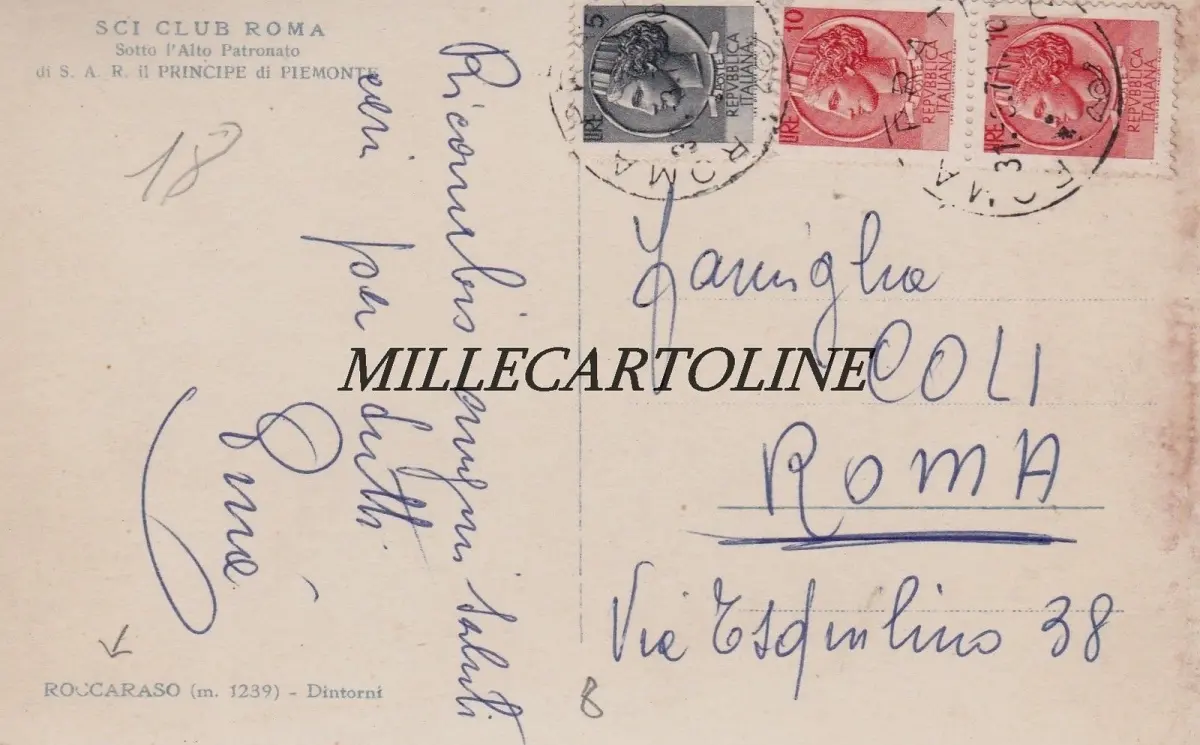 SCI CLUB ROMA
Sotto l'Alto Patronato
di S. A. R. il PRINCIPE di PIEMONTE
18
Ricambio auguri, saluti
per tutti
MILLECARTOLINE
LIRE 5
POSTE
REPVBBLICA
ITALIANA
LIRE 10
POSTE
REPVBBLICA
ITALIANA
LIRE
POSTE
REPVBBLICA
ITALIANA
ROMA
Famiglia
COLI
ROMA
Via Esquilino 38
ROCCARASO (m. 1239) - Dintorni
8